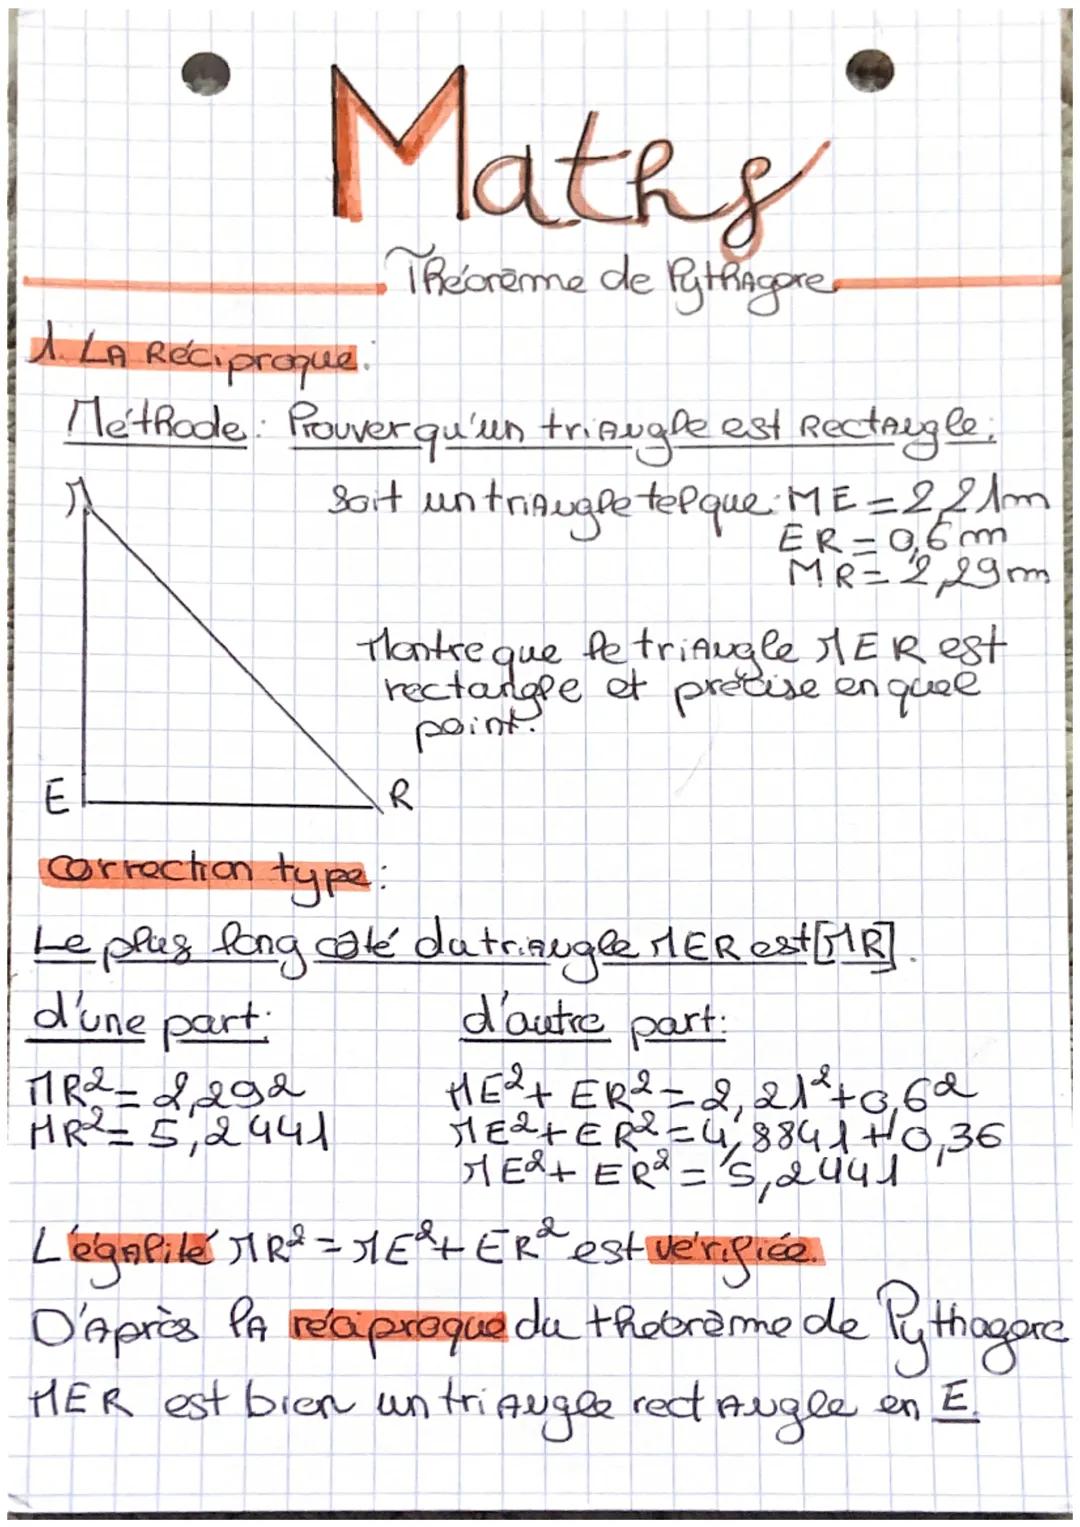 Maths
Théorème de Pythagore
1. La Réciproque:
Méthode: Prouver qu'un triangle est Rectangle:
M
Soit un triangle tel que: ME = 2,21m
ER = 0,6m
MR = 2,29m
Montre que le triangle MER est
rectangle et précise en quel
point.
E
R
correction type:
Le plus long côté du triangle MER est [MR].
d'une part:
d'autre part:
MR² = 2,29²
MR² = 5,2441
ME² + ER² = 2,21² + 0,6²
ME² + ER² = 4,8841 + 0,36
ME² + ER² = 5,2441
L'égalité MR² = ME² + ER² est vérifiée.
D'Après la réciproque du théorème de Pythagore
MER est bien un triangle rectangle en E.